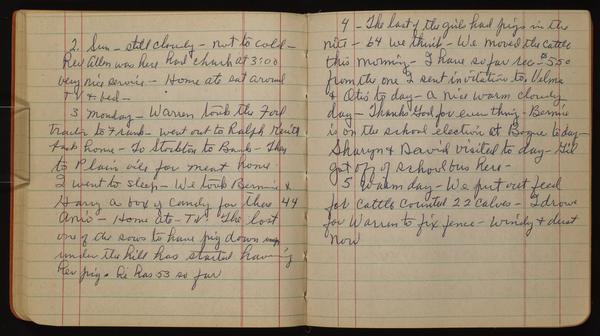 2. Sun - still cloudy - not to cold -
Rev Allen was here had church at 3:00
very nice servis - Home ate sat around
TV & bed -
3 Monday - Warren took the Ford
Tractor to - went out to Ralph
- home - To Stockton to Bank - They
to Plainville for meat home
I went to sleep - We took Bernice &
Harry a box of candy for there 44
Ann - Home ate - TV - The last
one of the sows to have pig down
under the hill has started having
her pig. he has 53 so far
4 - The last of the gilts had pigs in the
nite - 64 we think - We moved the cattle
this morning - I have so far rec 5.50
from the one I sent invitation to, Velma
& Otis to day - A nice warm cloudy
day - Thanks God for ever thing - Bernice
is on the school election at Bogue to day -
Sharyn & David visited to day - Gil
got off of school bus here -
5 Warm day - We put out feed
for cattle counted 22 calves - I drove
for Warren to fix fence - Windy & dust
now